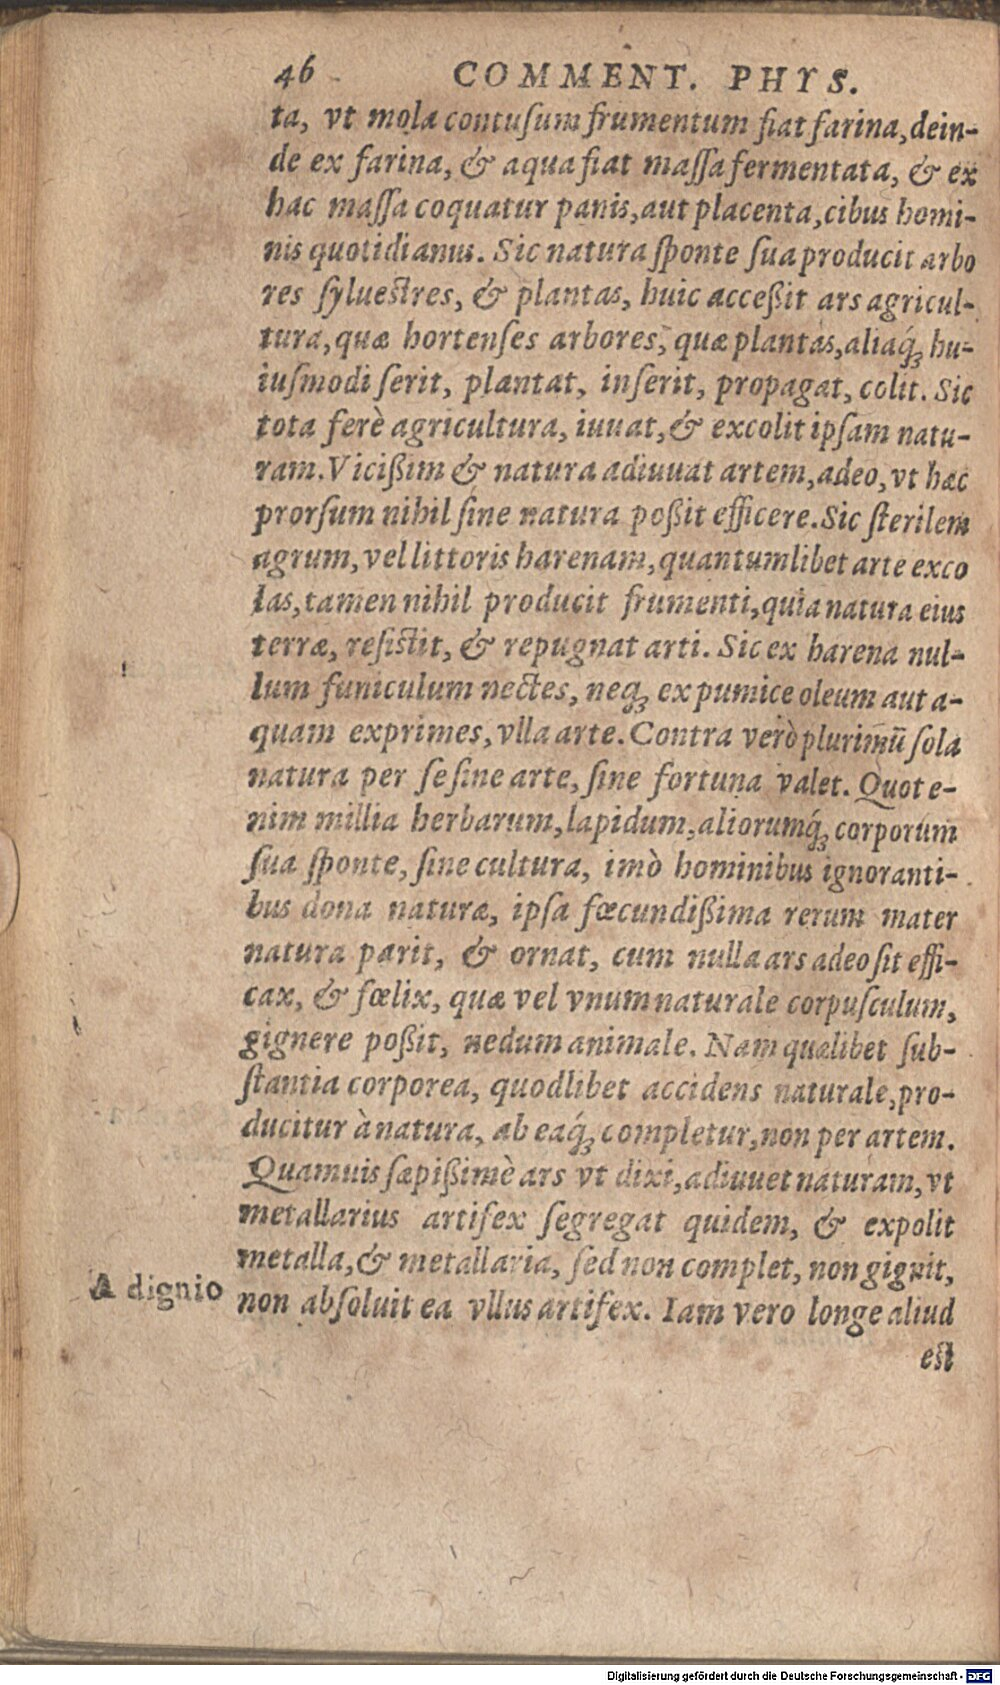 46 COMMENT. PHYS.
ta, vt mola contuſum frumentum fiat farina, dein-
de ex farina, & aqua fiat maſſa fermentata, & ex
hac maſſa coquatur panis, aut placenta, cibus homi-
nis quotidianus. Sic natura ſponte ſua producit arbo
res ſylueſtres, & plantas, huic acceßit ars agricul-
tura, quæ hortenſes arbores, quæ plantas, aliaq́ꝫ hu-
iuſmodi ſerit, plantat, inſerit, propagat, colit. Sic
tota ferè agricultura, iuuat, & excolit ipſam natu-
ram. Vicißim & natura adiuuat artem, adeo, vt hæc
prorſum nihil ſine natura poßit efficere. Sic ſterilem
agrum, vel littoris harenam, quantumlibet arte exco
las, tamen nihil producit frumenti, quia natura eius
terræ, reſiſtit, & repugnat arti. Sic ex harena nul-
lum funiculum nectes, neqꝫ ex pumice oleum aut a-
quam exprimes, vlla arte. Contra verò plurimū ſola
natura per ſe ſine arte, ſine fortuna valet. Quot e-
nim millia herbarum, lapidum, aliorumq́ꝫ corporum
ſua ſponte, ſine cultura, imò hominibus ignoranti-
bus dona naturæ, ipſa fœcundißima rerum mater
natura parit, & ornat, cum nulla ars adeo ſit effi-
cax, & fœlix, quæ vel vnum naturale corpuſculum,
gignere poßit, nedum animale. Nam quælibet ſub-
ſtantia corporea, quodlibet accidens naturale, pro-
ducitur à natura, ab eaq́ꝫ completur, non per artem.
Quamuis ſæpißimè ars vt dixi, adiuuet naturam, vt
metallarius artifex ſegregat quidem, & expolit
metalla, & metallaria, ſed non complet, non gignit,
A dignio
non abſoluit ea vllus artifex. Iam vero longe aliud
eſt
Digitalisierung gefördert durch die Deutsche Forschungsgemeinschaft - DFG